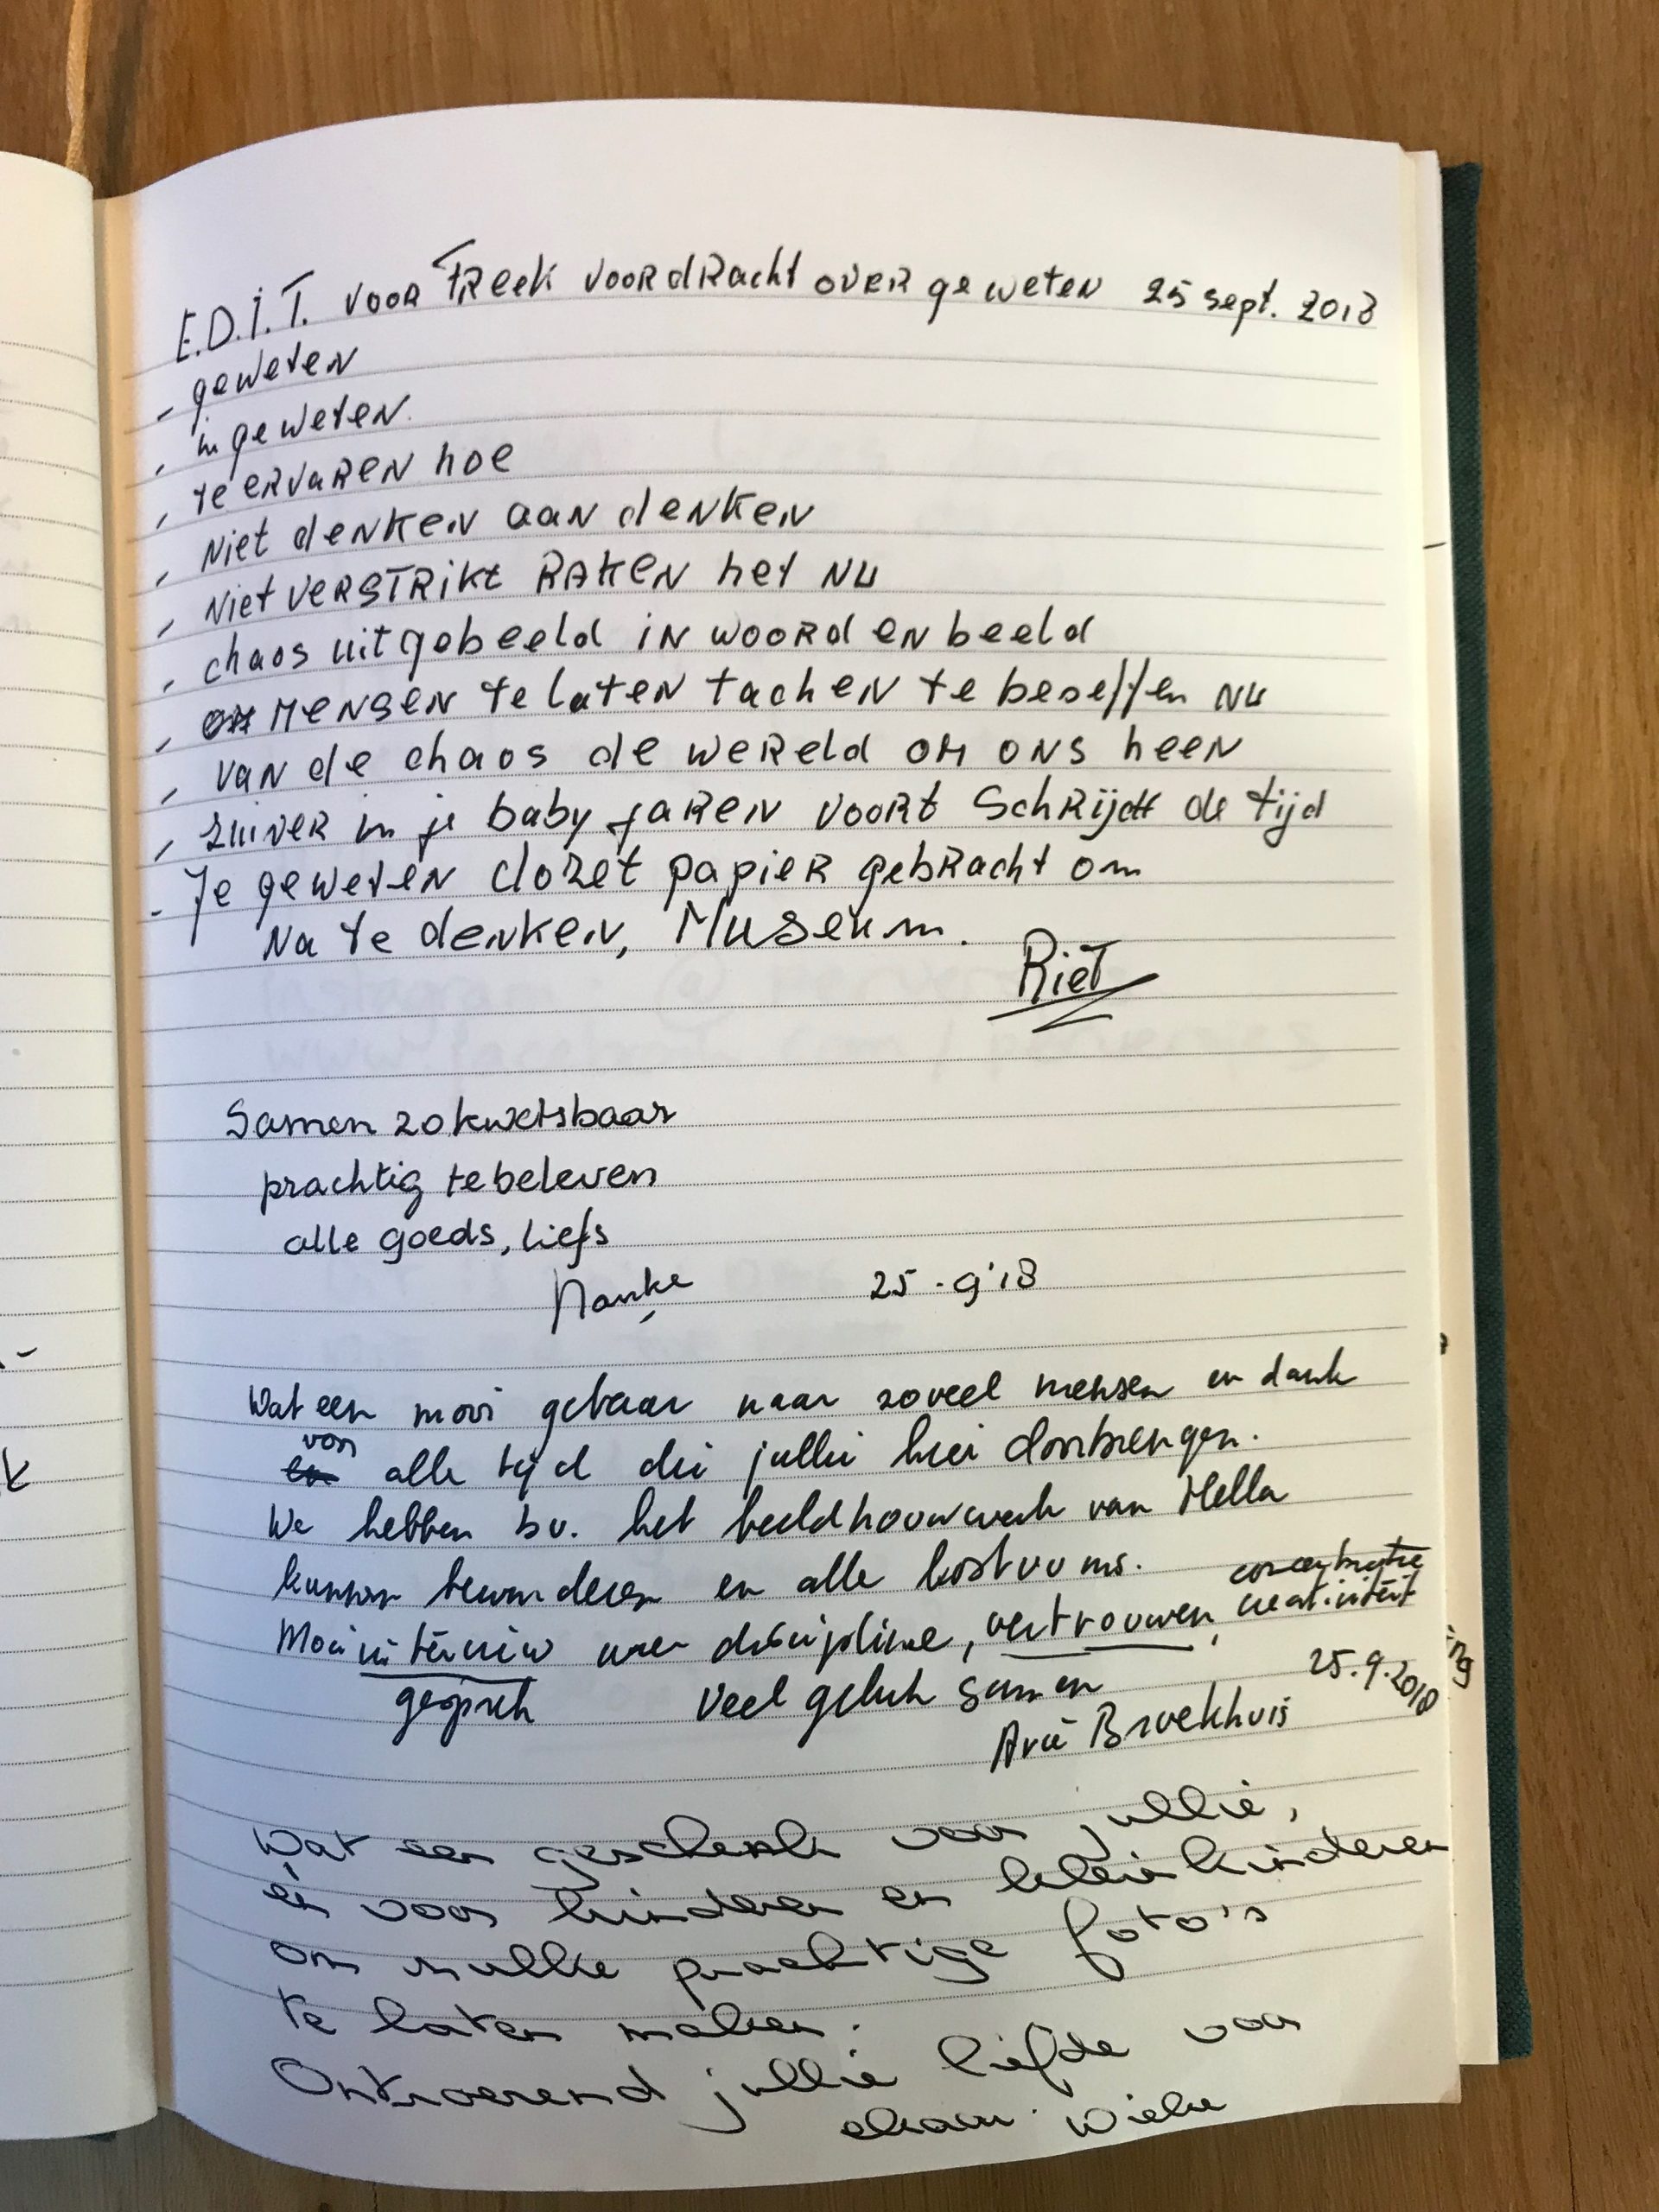 E.D.I.T. voor Freek voordracht over geweten 25 sept. 2018
- geweten
, in geweten.
, te ervaren hoe
, Niet denken aan denken
, Niet verstrikt raken het nu
, chaos uitgebeeld in woord en beeld
, mensen te laten lachen te beseffen nu
, van de chaos de wereld om ons heen
, zuiver in je baby jaren voort schrijdt de tijd
- Je geweten clozet papier gebracht om
Na te denken, Museum.
Riet
Samen zo kwetsbaar
prachtig te beleven
alle goeds, liefs
25-9'18
Wat een mooi gebaar naar zoveel mensen en dank
voor
alle tijd die jullie hier doorbrengen.
We hebben bv. het beeldhouwwerk van Hella
kunnen bewonderen en alle kostuums.
concentratie
Mooi interview over discipline, vertrouwen, creativiteit
gesprek veel geluk samen 25.9.2018
Arie Broekhuis
Wat een geschenk voor jullie,
én voor kinderen en kleinkinderen
om zulke prachtige foto's
te laten maken.
Ontroerend jullie liefde voor
elkaar. Wieke
ing